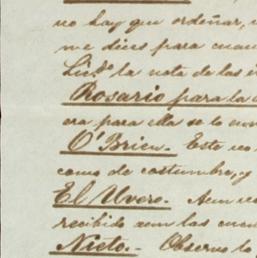 no hay que ordeñar,
me dices para cuan
Lic.do la nota de las
Rosario para la
era para ella se lo
O'Brien.- Este
como de costumbre, y
El Uvero. Aun
recibido aun las cuen
Nieto.- Observo lo